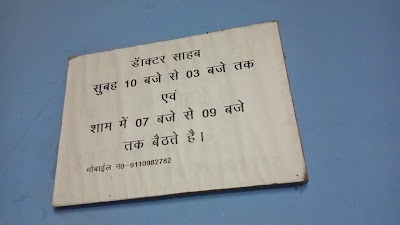 डॅाक्टर साहब
सुबह 10 बजे से 03 बजे तक
एवं
शाम में 07 बजे से 09 बजे
तक बैठते है।
मोबाईल न0-9110982782